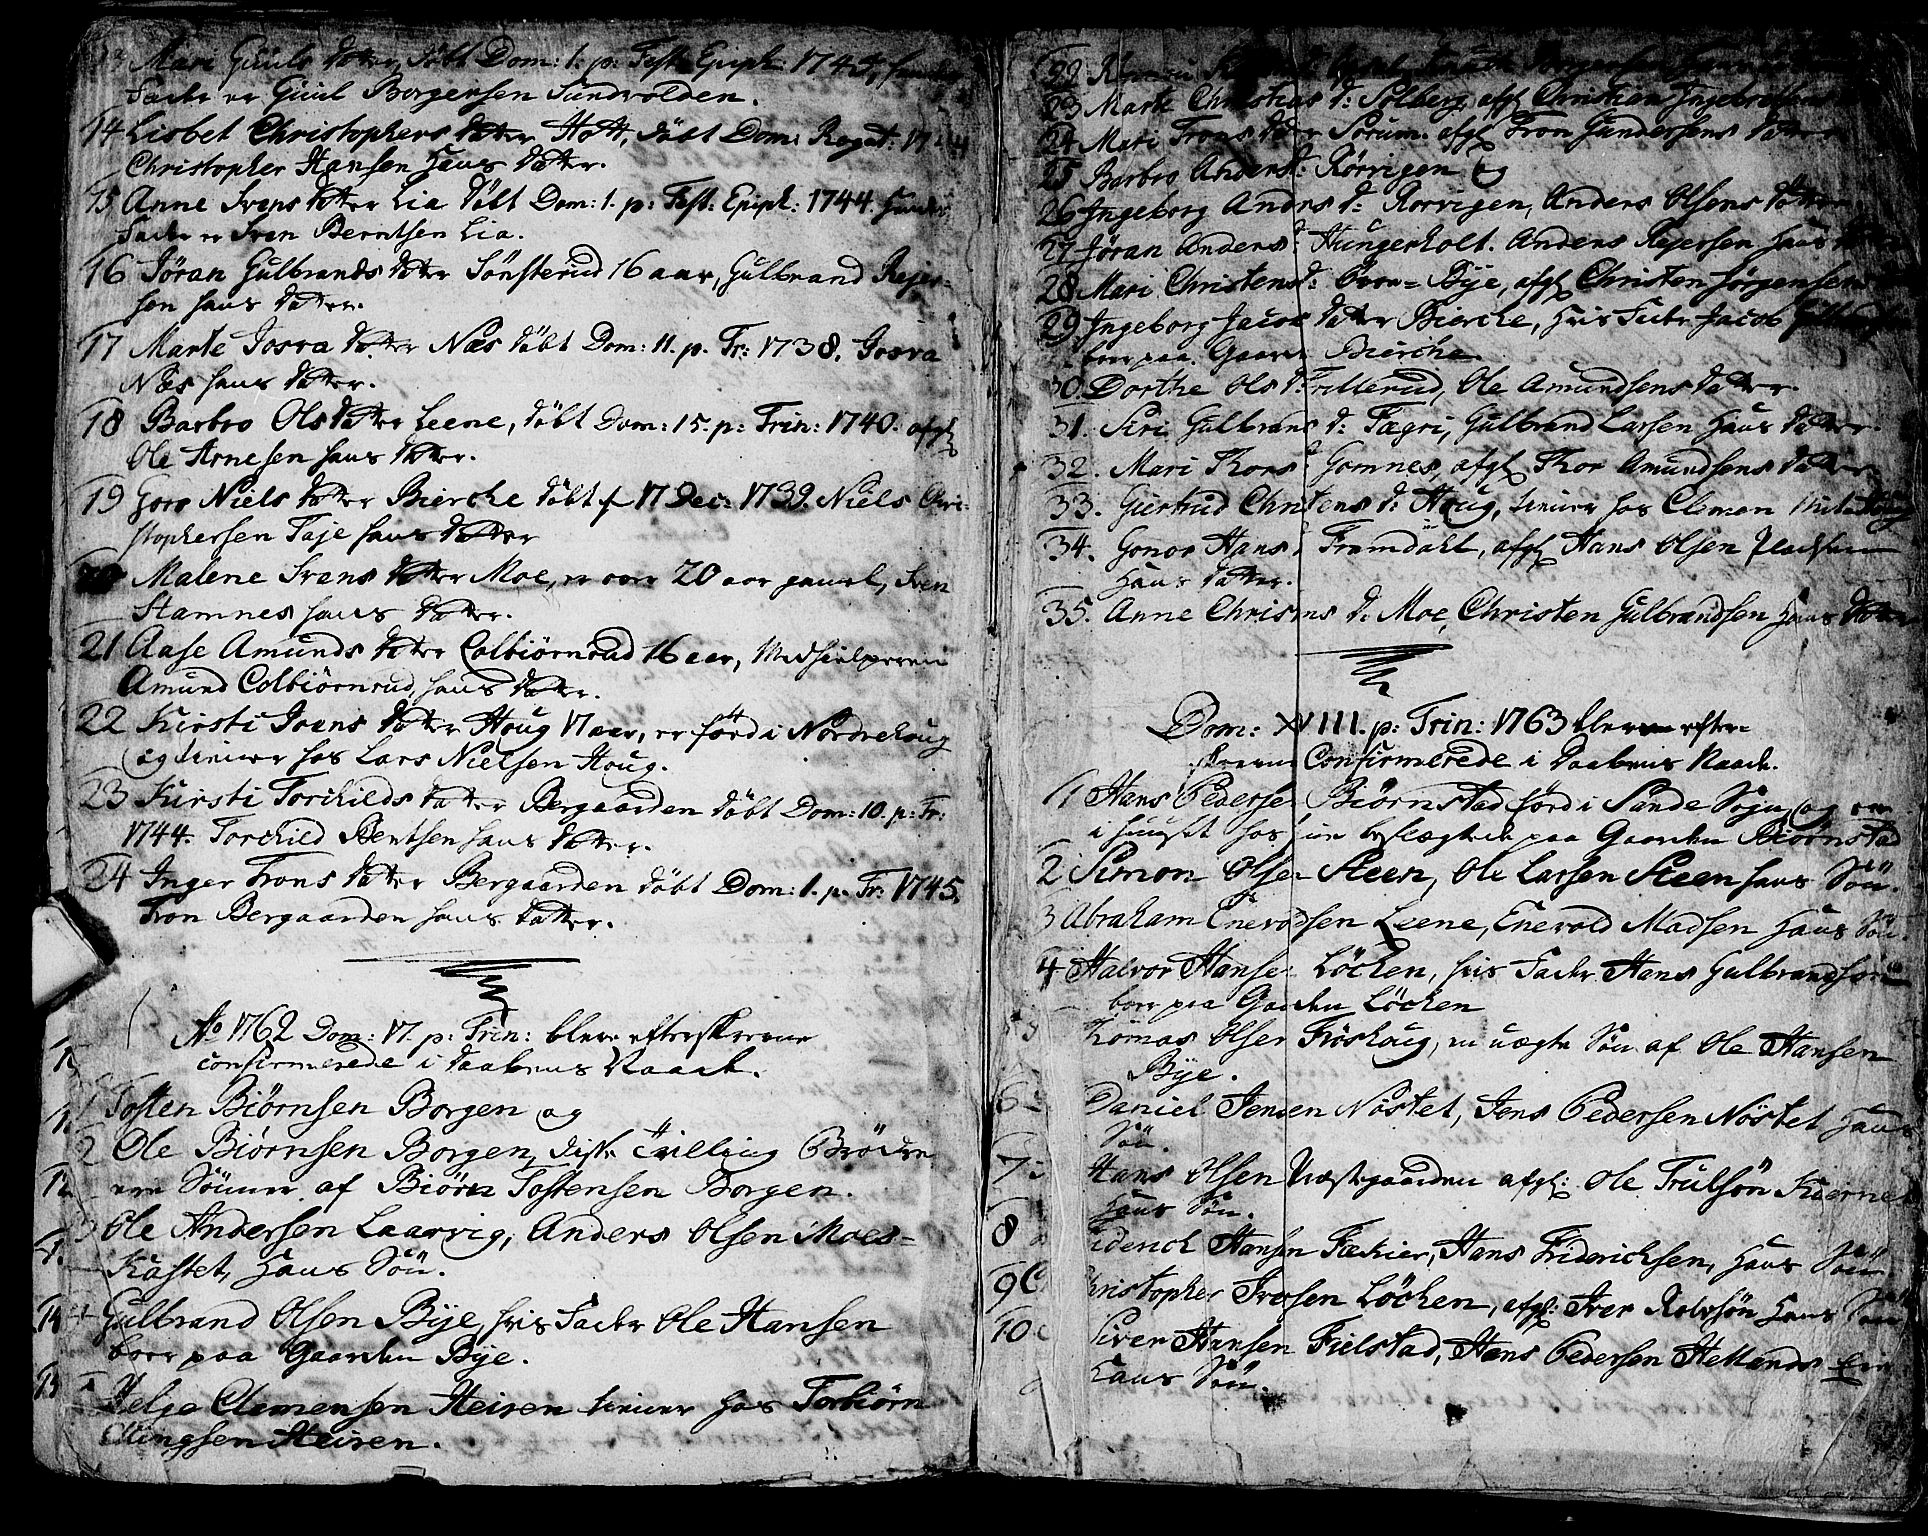 Mari Guuls datter, döbt Dom: 1. p: Fest: Epiph: 1745,
Fader er Guul Borgersen Sundvolden.
14 Lisbet Christophers datter Hott, döbt Dom: Rogat: 17
Christopher Hansen hans datter.
15 Anne Svens datter Lia döbt Dom: 1. p: Fest: Epiph: 1744. hendes
Fader er Sven Berntsen Lia.
16 Jöran Gulbrands datter Sönsterud 16 aar, Gulbrand Rejer-
sen hans datter.
17 Marte Josva datter Næs döbt Dom: 11. p. Tr: 1738. Josva
Næs hans datter.
18 Barbro Ols datter Leene, döbt Dom: 15. p: Trin: 1740. afgl
Ole Arnesen hans datter.
19 Goro Niels datter Bierche döbt d 17 Dec: 1739. Niels Chri-
stophersen Taje hans datter
20 Malene Svens datter Moe, er over 20 aar gamel, Sven
Stamnes hans datter.
21 Aase Amunds datter Colbiörnrud 16 aar, Medhielperen
Amund Colbiörnrud, hans datter.
22 Kirsti Ivers datter Houg 17 aar, er föd i Nordrehoug
og tiener hos Lars Nielsen Houg.
23 Kirsti Torchilds datter Bergaarden döbt Dom: 10. p: Tr:
1744. Torchild Bentsen hans datter.
24 Inger Trons datter Bergaarden döbt Dom: 1. p. Tr: 1745.
Tron Bergaarden hans datter.
Ao 1762 Dom: 17. p: Trin: bleve efterskrevne
confirmerede i Daabens Naade.
1 Tosten Biörnsen Borgen og
2 Ole Biörnsen Borgen, diste Tvilling Brödre
ere Sönner af Biörn Tostensen Borgen.
3 Ole Andersen Laarvig, Anders Olsen Moes-
Kastet, hans Sön.
Gulbrand Olsen Bije, hvis Fader Ole Hansen
boer paa Gaarden Bije.
Helge Clemensen Heiren tiener hos Torbiörn
Heiren.
22
23 Marte Christens d: Solberg afgl Christian Ingebretsens
24 Mari Trons datter Sorum. afgl Tron Gundersens datter
25 Barbro Anders d: Rörvigen og
26 Ingeborg Anders d: Rorvigen, Anders Olsens datter
27 Jöran Anders d: Hungerholt. Anders Rejersen hans datter
28 Mari Christens d: Bye, afgl Christen Jörgensen
29 Ingeborg Jacob datter Bierche, hvis Fader Jacob Gulbrandsen
boer paa Gaarden Bierche.
30. Dorthe Ols d: Fillerud, Ole Amundsens datter.
31. Siri Gulbrans d: Fægri, Gulbrand Larsen hans datter.
32. Mari Thors d: Gomnes, afgl Thor Amundsens datter.
33. Giertrud Christens d: Houg, tiener hos Clemen
34. Gonor Hans d: Framdahl, afgl Hans Olsen
hans datter.
35. Anne Christens d: Moe, Christen Gulbrandsen hans datter
Dom: XVIII. p: Trin: 1763 bleve efter-
skrevne Confirmerede i Daabens Naade.
1 Hans Pedersen Biörnstad föd i Sande Sogn, og nu
i huuset hos sine beslægtede paa Gaarden Biörnstad
2 Simon Olsen Steen, Ole Larsen Steen hans Sön.
3 Abraham Enevoldsen Leene, Enevold Madsen hans Sön
4 Halvor Hansen Löchen, hvis Fader Hans Gulbrandsen
boer paa Gaarden Löchen
5 Thomas Olsen Fröshoug, en uægte Sön af Ole Hansen
Bije.
6 Daniel Jensen Nöstet, Jens Pedersen Nöstet hans
Sön.
7 Hans Olsen Vestgaarden afgl: Ole Trulsön
hans Sön.
8 Friderich Hansen Fækier, Hans Friderichsen, hans Sön
9 Christopher Iversen Löchen, afgl: Iver Rolvsön hans Sön
10 Siver Hansen Fielstad, Hans Pedersen Hellands
hans Sön.